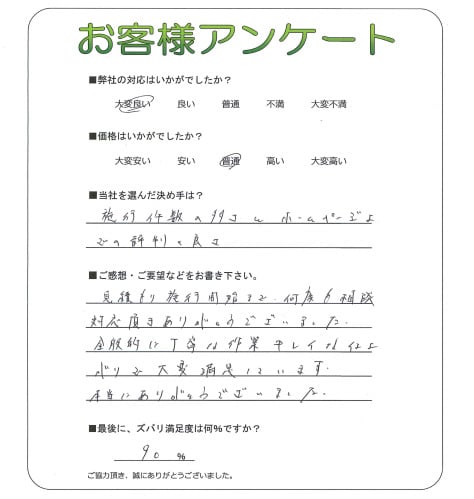 お客様アンケート
■弊社の対応はいかがでしたか？
大変良い 良い 普通 不満 大変不満
■価格はいかがでしたか？
大変安い 安い 普通 高い 大変高い
■当社を選んだ決め手は？
施行件数の多さとホームページ上
での評判の良さ
■ご感想・ご要望などをお書き下さい。
見積もり施行開始まで、何度も相談
対応頂きありがとうございました。
全般的に丁寧な作業キレイな仕上
がりで大変満足しています。
本当にありがとうございました。
■最後に、ズバリ満足度は何％ですか？
90 %
ご協力頂き、誠にありがとうございました。